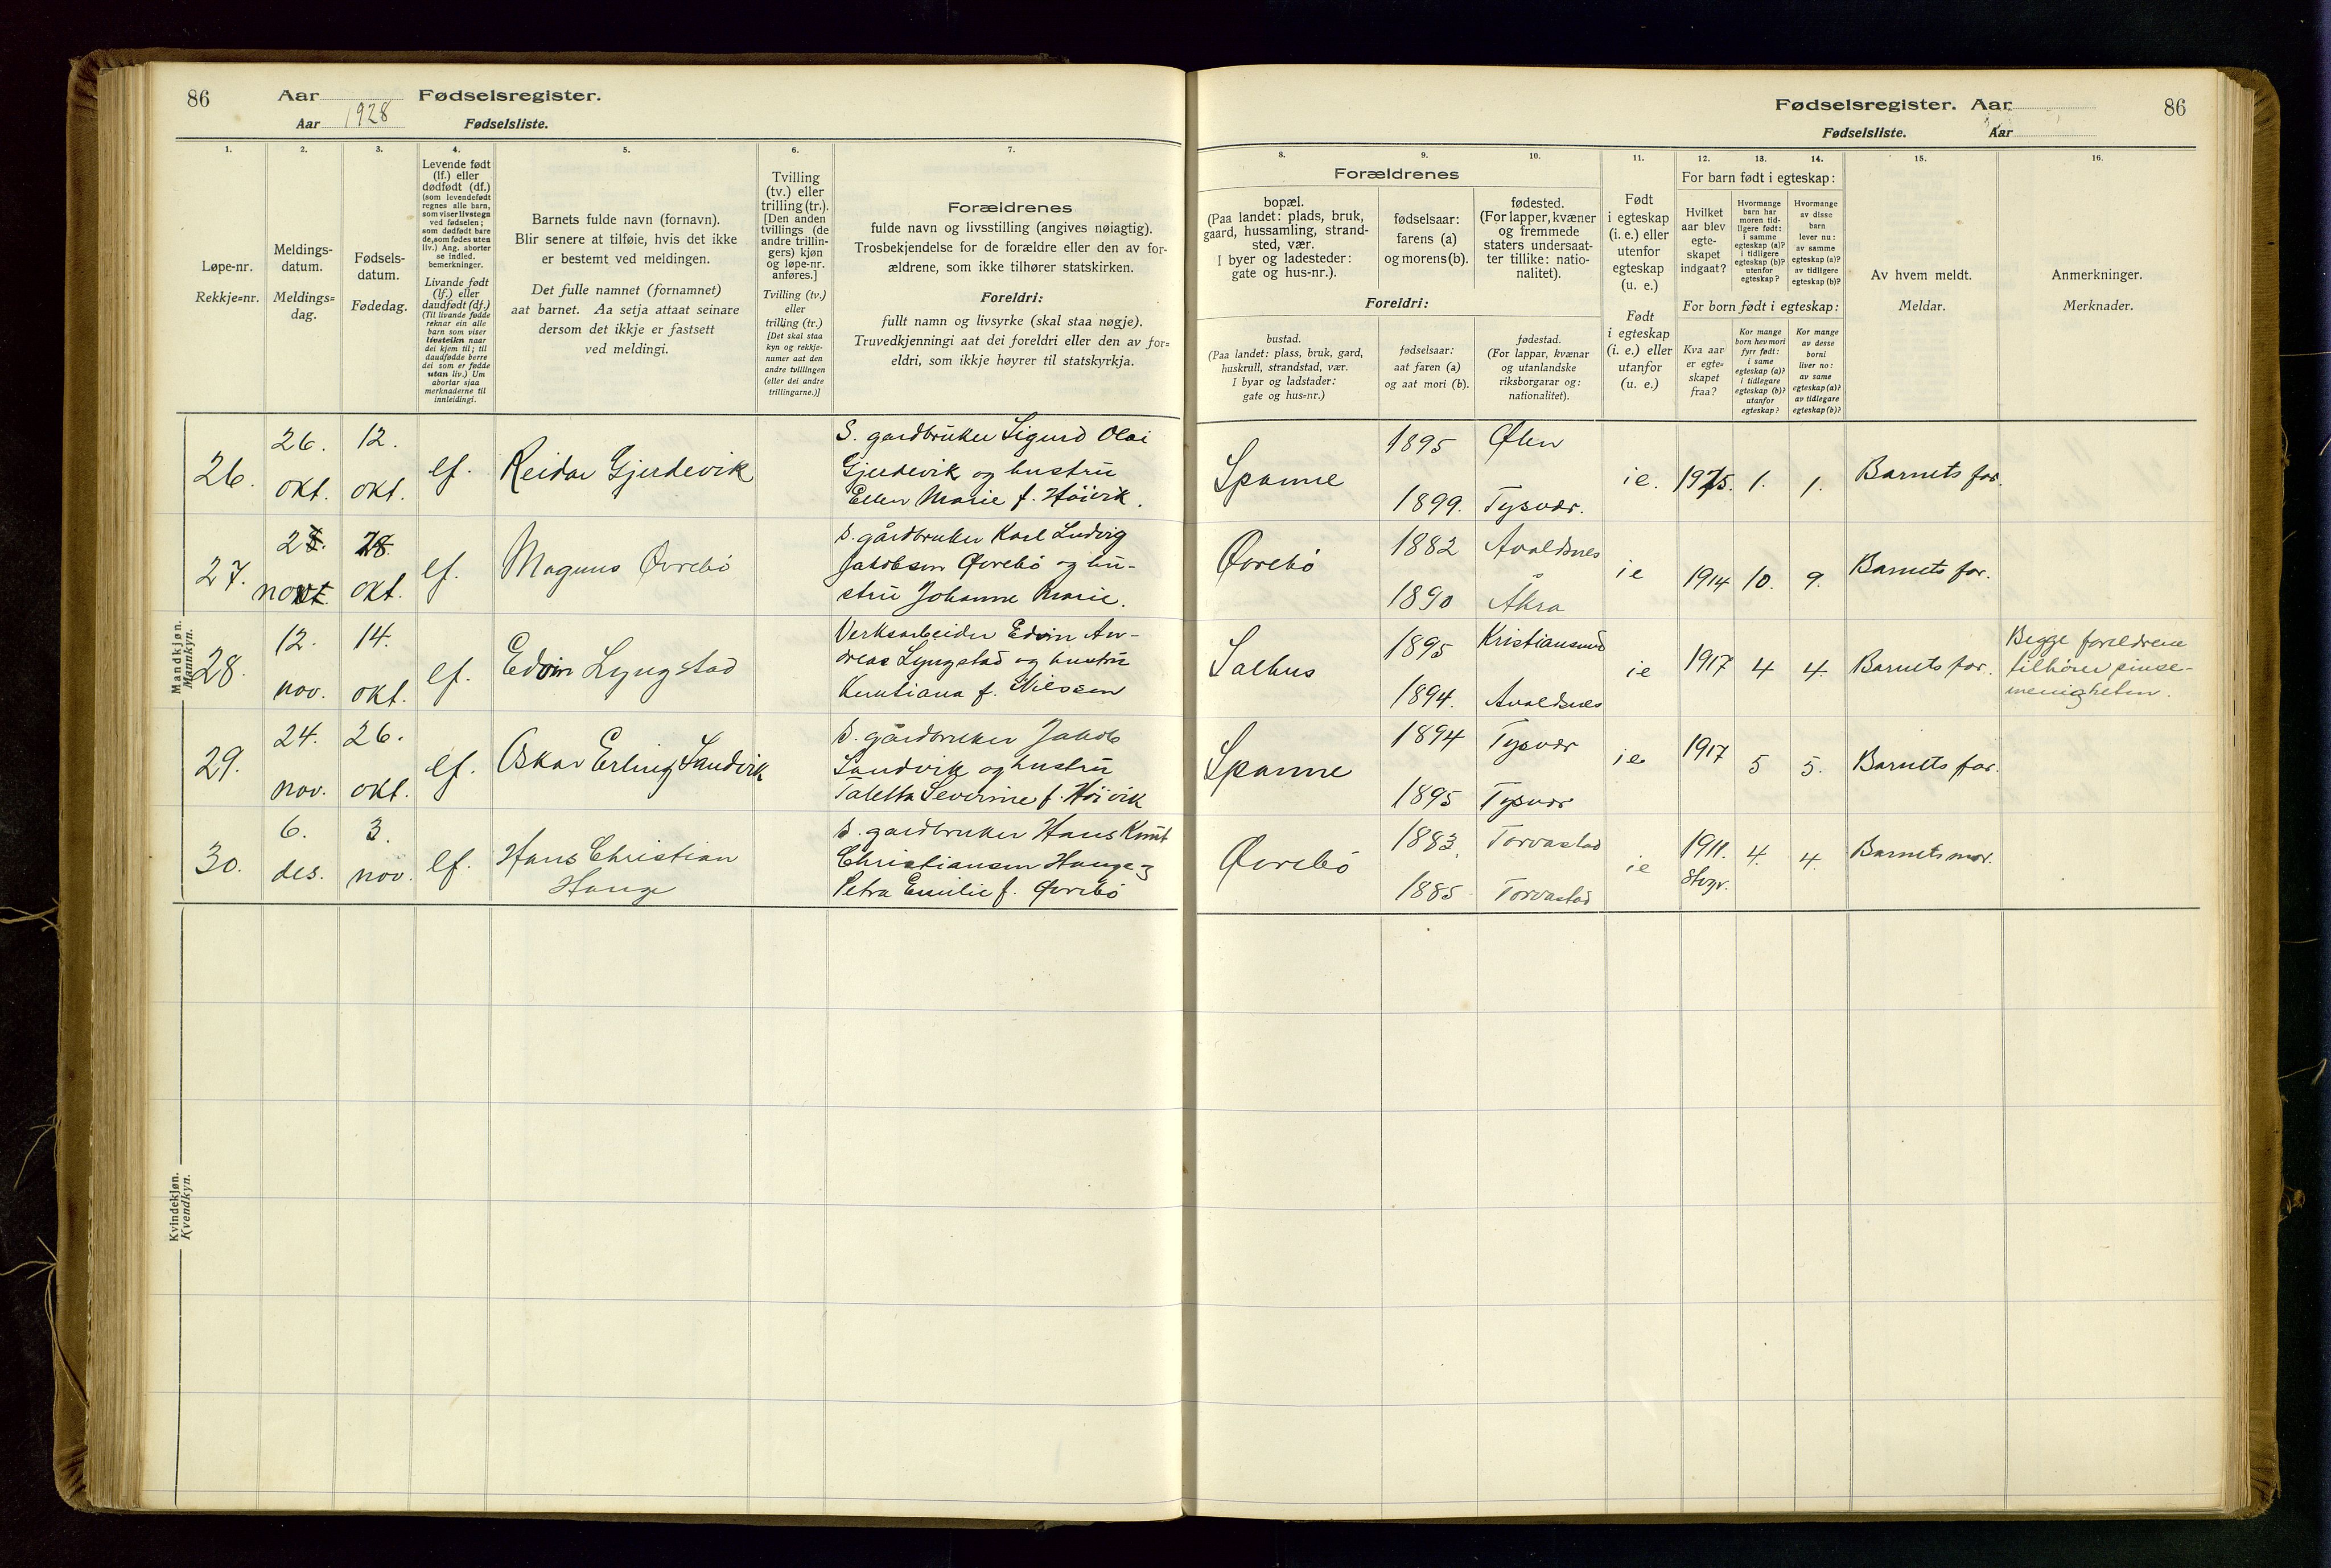 86
Aar 1928 Fødselsregister.
Aar Fødselsliste.
1. 2. 3. 4. 5. 6. 7.
Løpe-nr.
Rekkje=nr.
Meldings-
datum.
Meldings=
dag.
Fødsels-
datum.
Fødedag.
Levende født
(lf.) eller
dødfødt (df.)
(som levendefødt
regnes alle barn,
som viser livstegn
ved fødselen;
som dødfødt bare
de, som fødes uten
liv.) Ang. aborter
se indled.
bemerkninger.
Livande født
(lf.) eller
daudfødt (df.)
(Til livande fødde
reknar ein alle
barn som viser
livsteikn naar
dei kjem til; til
daudfødde berre
dei som er fødde
utan liv.) Um
abortar sjaa
merknaderne til
innleidingi.
Barnets fulde navn (fornavn).
Blir senere at tilføie, hvis det ikke
er bestemt ved meldingen.
Det fulle namnet (fornamnet)
aat barnet. Aa setja attaat seinare
dersom det ikkje er fastsett
ved meldingi.
Tvilling
(tv.) eller
trilling (tr.).
[Den anden
tvillings (de
andre trillin-
gers) kjøn
og løpe-nr.
anføres.]
Tvilling (tv.)
eller
trilling (tr.)
[Det skal staa
kyn og rekkje-
numer aat den
andre tvillingen
(eller dei andre
trillingarne.)]
Forældrenes
fulde navn og livsstilling (angives nøiagtig).
Trosbekjendelse for de forældre eller den av for-
ældrene, som ikke tilhører statskirken.
Foreldri:
fullt namn og livsyrke (skal staa nøgje).
Truvedkjenningi aat dei foreldri eller den av for=
eldri, som ikkje høyrer til statskyrkja.
Mandkjøn.
Mannkyn.
26. 26. okt. 12. okt. lf. Reidar Gjerdevik
S. gardbruker Sigurd Olai
Gjerdevik og hustru
Ellen Marie f. Höivik.
27. nov. 28. okt. lf. Magnus Övrebö
S. gårdbruker Karl Ludvig
Jakobsen Övrebö og hu-
stru Johanne Marie.
28. 12. nov. 14. okt. lf. Edvin Lyngstad
Verksarbeider Edvin An-
dreas Lyngstad og hustru
Kristiana f. Nilssen
29. 24. nov. 26. okt. lf. Oskar Erling Sandvik
S. gårdbruker Jakob
Sandvik og hustru
Taletta Severine f. Höivik
30. 6. des. 3. nov. lf. Hans Christian
Hauge
S. gardbruker Hans Knut
Christiansen Hauge og
Petra Emilie f. Övrebö
Kvindekjøn.
Kvendkyn.
Fødselsregister. Aar
86
Fødselsliste. Aar
8. 9. 10. 11. 12. 13. 14. 15. 16.
Forældrenes
bopæl.
(Paa landet: plads, bruk,
gaard, hussamling, strand-
sted, vær.
I byer og ladesteder:
gate og hus-nr.).
fødselsaar:
farens (a)
og morens (b).
fødested.
(For lapper, kvæner
og fremmede
staters undersaat-
ter tillike: natio-
nalitet).
Foreldri:
bustad.
(Paa landet: plass, bruk, gard,
huskrull, strandstad, vær.
I byar og ladstader:
gate og hus=nr.)
fødselsaar:
aat faren (a)
og aat mori (b).
fødestad.
(For lappar, kvænar
og utanlandske
riksborgarar og:
nationalitet).
Født
i egteskap
(i. e.) eller
utenfor
egteskap
(u. e.)
Født
i egteskap
(i. e.) eller
utanfor
(u. e.)
For barn født i egteskap:
Hvilket
aar blev
egte-
skapet
indgaat?
Hvormange
barn har
moren tid-
ligere født:
i samme
egteskap (a)?
i tidligere
egteskap (b)?
utenfor
egteskap?
Hvormange
av disse
barn
lever nu:
av samme
egteskap (a)?
av tidligere
egteskap (b)?
For born født i egteskap:
Kva aar
er egte=
skapet
fraa?
Kor mange
born hev mori
fyrr født:
i same
egteskap (a)?
i tidlegare
egteskap (b)?
utanfor
egteskap?
Kor mange
av desse
borni
liver no:
av same
egteskap (a)?
av tidlegare
egteskap (b)?
Av hvem meldt.
Meldar.
Anmerkninger.
Merknader.
Spanne 1895 Ølen i e. 1. 1. Barnets far.
1899. Tysvær.
Övrebö 1882 Avaldsnes i e 1914 10. 9. Barnets far.
1890 Åkra
Salhus 1895 Kristiansund i e 1917 4 4. Barnets far.
1894. Avaldsnes
Begge foreldrene
tilhører pinse-
menigheten.
Spanne 1894 Tysvær i e 1917 5 5. Barnets far.
1895 Tysvær
Övrebö 1883. Torvastad i e 1911. 4. 4. Barnets mor.
1885 Torvastad